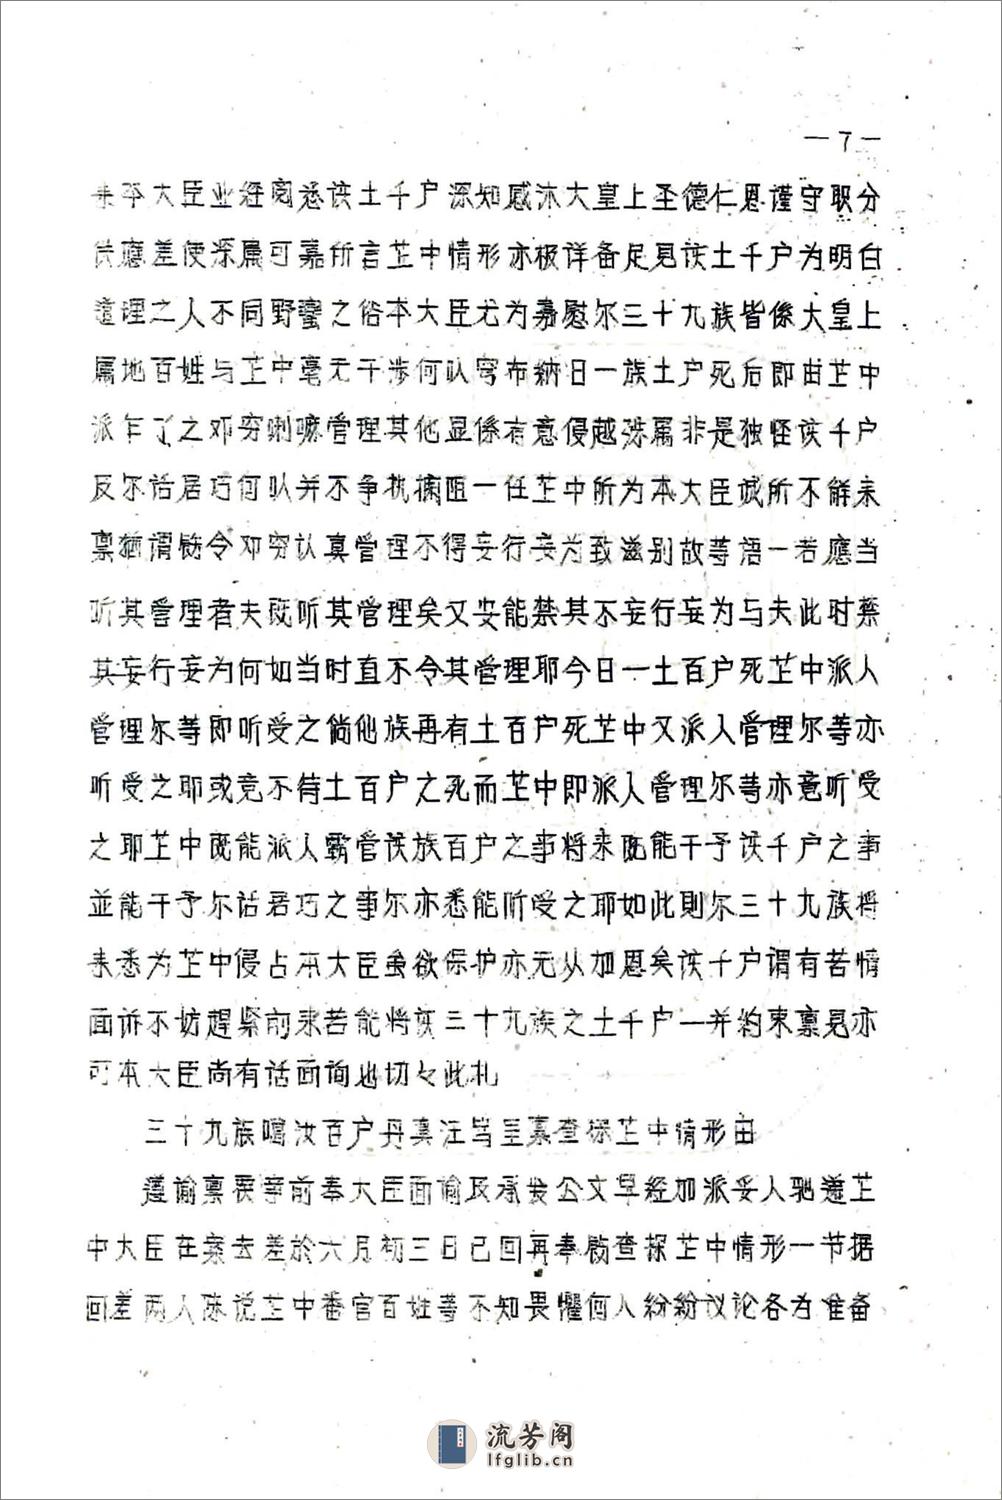 —7—
来本大臣业经阅悉该土千户深知感沐大皇上圣德仁恩谨守职分
供應差使深属可嘉所言芷中情形亦极详备足見该土千户为明白
道理之人不同野蠻之俗本大臣尤为嘉慰尔三十九族皆係大皇上
属地百姓与芷中毫无干涉何以穹布納旧一族土户死后即由芷中
派乍了之邓穷喇嘛管理其他显係有意侵越殊属非是独怪该千户
反尔话居巧何以并不争执拦阻一任芷中所为本大臣诚所不解来
禀猶谓飭令邓穷认真管理不得妄行妄为致滋别故等语一若應当
听其管理者夫既听其管理矣又安能禁其不妄行妄为乌夫此时禁
其妄行妄为何如当时直不令其管理耶今日一土百户死芷中派人
管理尔等即听受之倘他族再有土百户死芷中又派人管理尔等亦
听受之耶或竞不待土百户之死而芷中即派人管理尔等亦竟听受
之耶芷中既能派人霸管该族百户之事将来既能干予该千户之事
並能干予尔话居巧之事尔亦悉能听受之耶如此則尔三十九族将
来悉为芷中侵占本大臣虽欲保护亦无从加恩矣该千户谓有苦情
面诉不妨趕紧前来若能将该三十九族之土千户一并約束禀見亦
可本大臣尚有话面询也切々此札
三十九族噶汝百户丹真汪笃呈禀查探芷中情形由
遵谕禀复等前奉大臣面谕及承发公文早经加派妥人驰道芷
中大臣在案去差於六月初三日已回再奉飭查探芷中情形一节据
回差两人陈说芷中番官百姓等不知畏懼何人紛紛议论各为准备
流芳阁
lfglib.cn